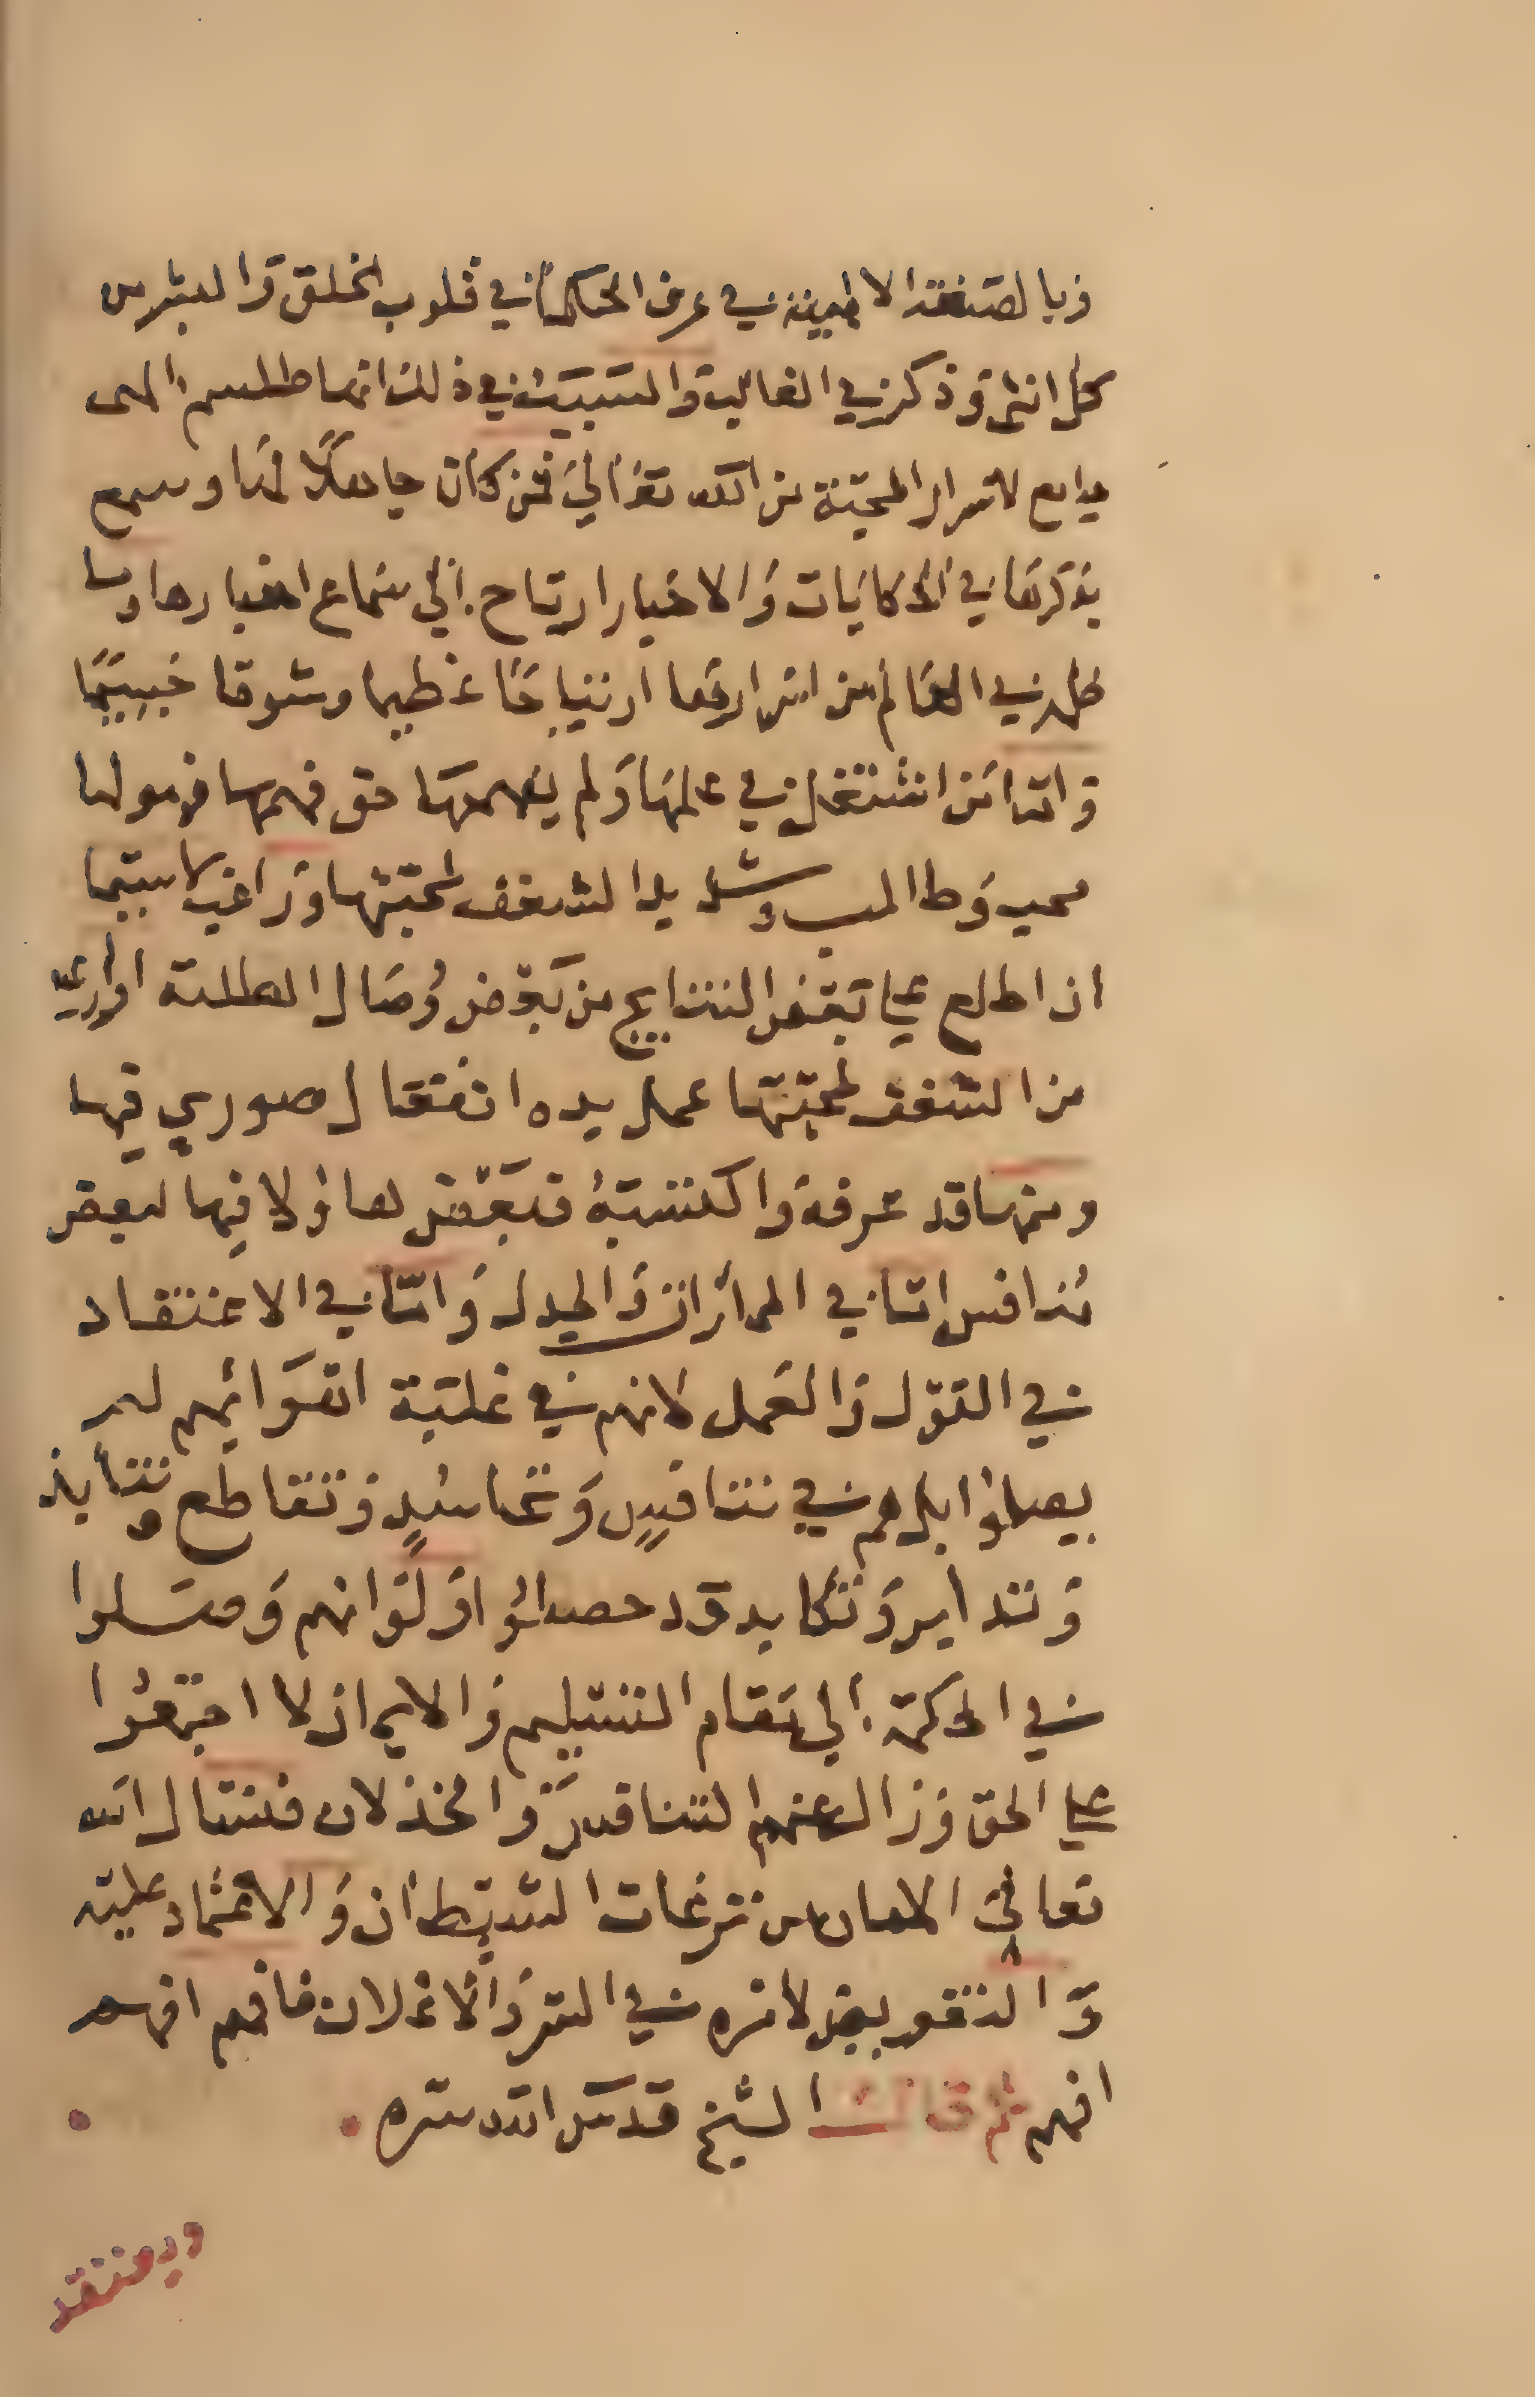 وبالصنعة الالهية في عرف الحكماء في قلوب الخلق والبشر من
كل انثى وذكر في الغالب والسبب في ذلك انها طلسم الهى
جامع لاسرار المحبة من الله تعالى فمن كان جاهلا لها وسمع
بذكرها في الحكايات والاخبار ارتاح الى سماع اخبارها وما
ظهر في العالم من اسرارها ارتياحا عظيما وشوقا جسيما
واما من اشتغل في علمها ولم يفهمها حق فهمها فهو لها
محب وطالب وشديد الشغف لمحبتها وراغب لاسيما
ان اطلع على بعض النتايج من بعض وصال الطلبة او
من الشغف لمحبتها عمل بيده انفعال صوري فيها
ومنها قد عرفه واكتسبه فبعض هاؤلا فيها لبعض
منافس اما في المرأاة والجدل واما في الاعتقاد
في القول والعمل لانهم في غلبة اهوائهم لم
يصلوا بل هم في تنافس وتحاسد وتقاطع وتنابذ
وتدابر وتكايد قد حصلوا ولو انهم وصلوا
في الحكمة الى مقام التسليم والايمان لا اجتمعوا
على الحق وزال عنهم التنافس والخذلان فنسال الله
تعالى الامان من نزغات الشيطان والاعتماد عليه
والتفويض لامره في السر والاعلان فافهم افهم
افهم ثم قال الشيخ قدس الله سره
ويعتقد